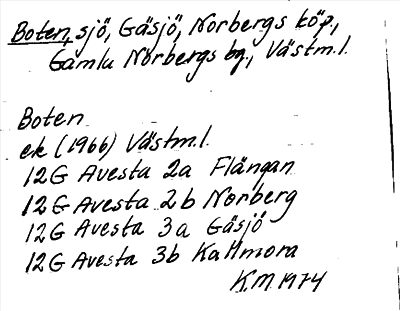 Boten, sjö, Gäsjö, Norbergs köp,
Gamla Norbergs bg., Västm.l.
Boten
ek (1966) Västm.l.
12G Avesta 2a Flängan
12G Avesta 2b Norberg
12G Avesta 3a Gäsjö
12G Avesta 3b Kallmora
K.M. 1974